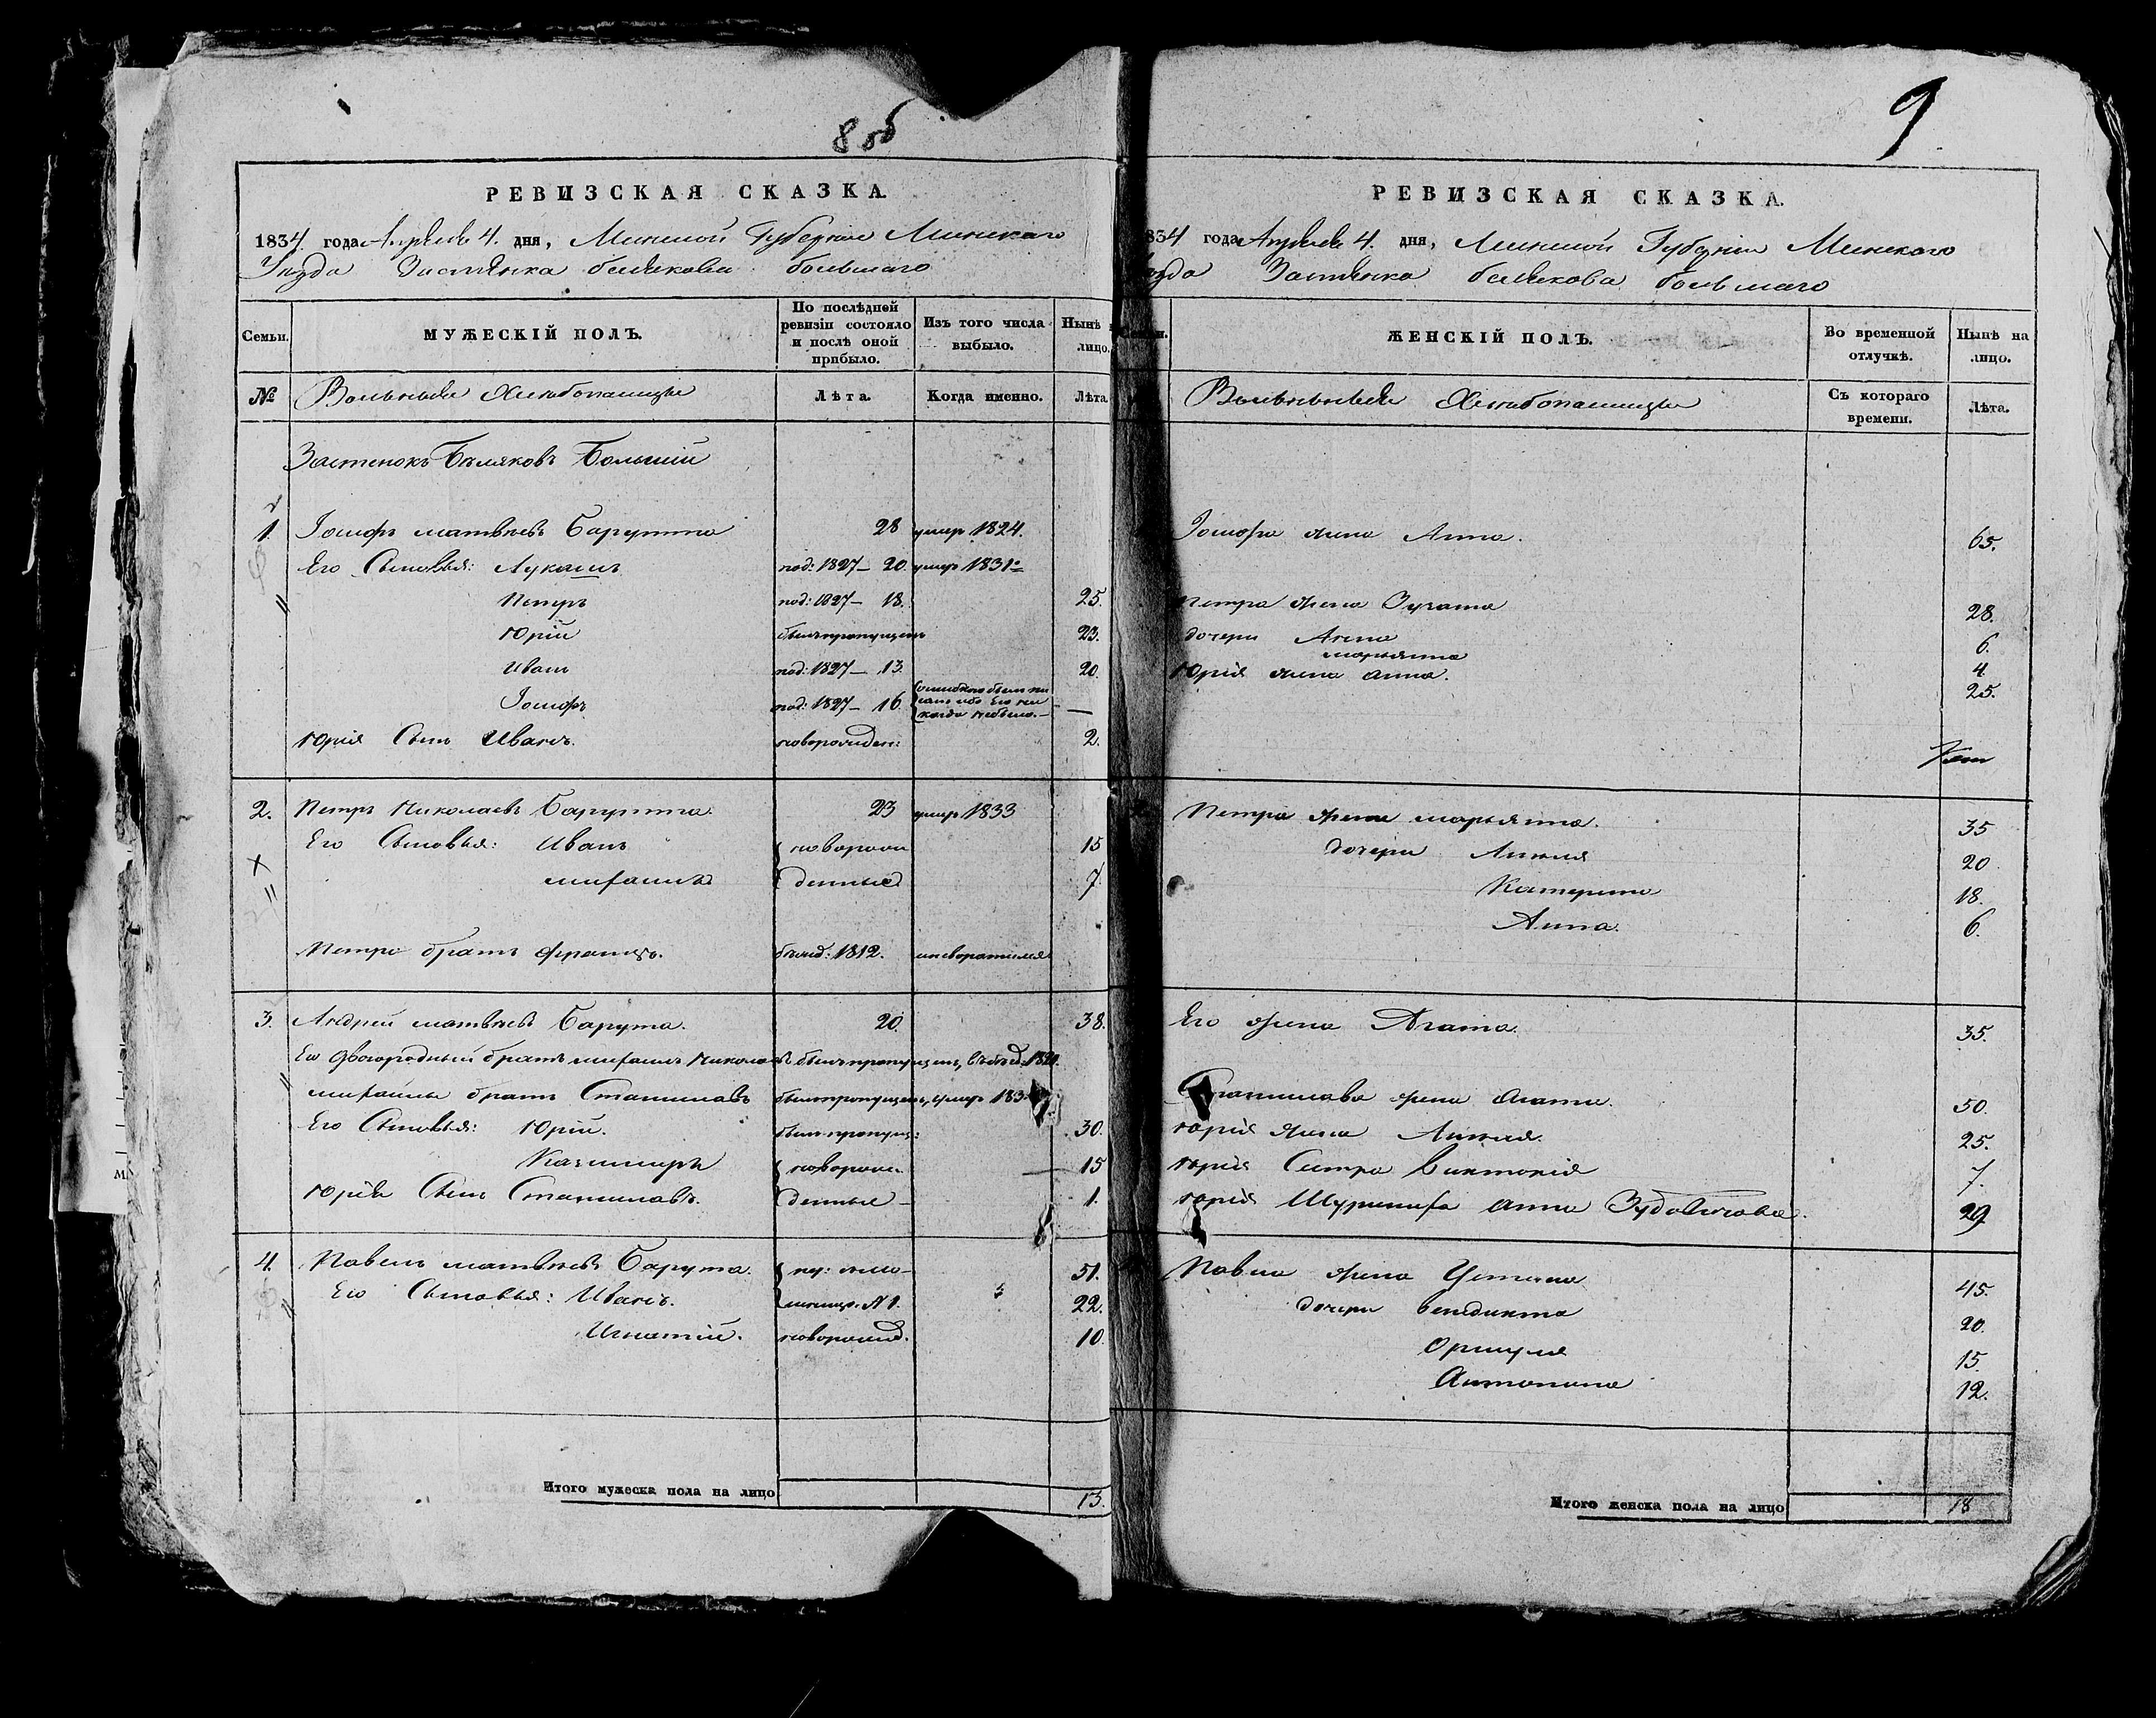 8 об
РЕВИЗСКАЯ СКАЗКА.
1834 года Апреля 4. дня, Минской Губернии Минскаго
Уезда Застѣнка белякова большаго
Семьи.
МУЖЕСКІЙ ПОЛЪ.
По послѣдней ревизіи состояло и послѣ оной прибыло.
Изъ того числа выбыло.
Нынѣ лицо.
№
Вольные Хлебопашцы
Лѣта.
Когда именно.
Лѣта
Застенокъ Бѣляковъ Большій
1. Іосифъ матвѣевъ Барутта 28 умер 1824.
Его Сыновья: Лукашъ под: 1827 – 20. умер 1831
Петръ под: 1827 – 18. 25.
Юрій былъ пропущенъ 23.
Иванъ под: 1827 – 13. 20.
Іосифъ под: 1827 – 16. —
Юрія Сынъ Иванъ. новорожден: 2.
2. Петръ Николаевъ Барутта. 23 умер 1833
Его Сыновья: Иванъ новорож 15
михаилъ денные 7
Петра братъ францъ. бѣжал: 1812. невратился
3. Андрей матвѣевъ Барута. 20. 38.
Его двоюродный братъ михаилъ Николаевъ былъ пропущенъ,
михаила братъ Станиславъ былъ пропущенъ, умер 183
Его Сыновья: Юрій. былъ пропущ: 30.
Казимиръ новорож 15
Юрія Сынъ Станиславъ. денные – 1.
4. Павелъ матвѣевъ Барута. 51.
Его Сыновья: Иванъ. №1. 22.
Игнатій. новорожд. 10.
Итого мужеска пола на лицо 13.
9
РЕВИЗСКАЯ СКАЗКА.
834 года Апреля 4. дня, Минской Губерніи Минскаго
езда Застѣнка белякова большаго
ЖЕНСКІЙ ПОЛЪ.
Во временной отлучкѣ.
Нынѣ на лицо.
Вольные Хлебопашцы
Съ котораго времени.
Лѣта.
Іосифа жена Анна. 65.
Петра жена 28.
дочери Анна 6.
марьянна 4
Юрія жена анна. 25.
Петра жена марьянна. 35
дочери Анеля 20
Катерина 18.
Анна. 6.
Его жена Агата. 35.
Станислава жена Агата. 50.
юрія жена Анеля. 25.
юрія Сестра Викторія 7.
юрія анна 29
Павла жена Устина 45.
дочери бенедикта 20.
Оршуля 15.
Антонина 12.
Итого женска пола на лицо 18